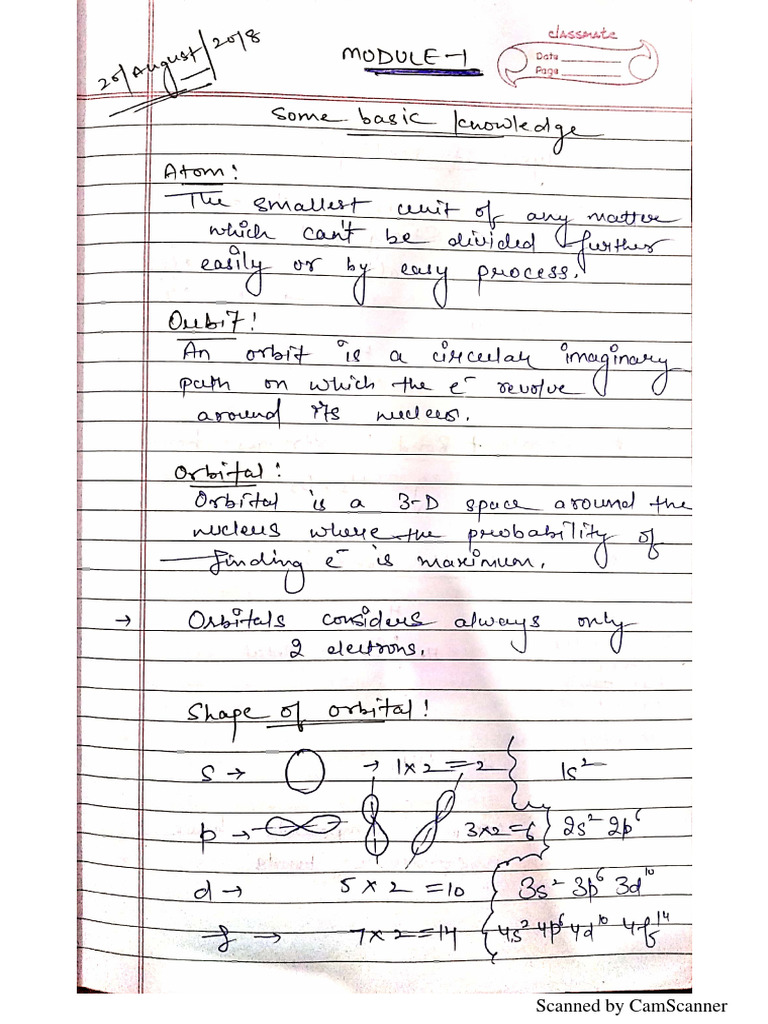 20/August/2018
MODULE-1
classmate
Date
Page
Some basic knowledge
Atom:
The smallest unit of any matter
which can't be divided further
easily or by easy process.
Orbit:
An orbit is a circular imaginary
path on which the e⁻ revolve
around its nucleus.
Orbital:
Orbital is a 3-D space around the
nucleus where the probability of
finding e⁻ is maximum.
→ Orbitals considers always only
2 electrons.
Shape of orbital:
s → → 1×2=2 1s²
p → 3×2=6 2s² 2p⁶
d → 5×2=10 3s² 3p⁶ 3d¹⁰
f → 7×2=14 4s² 4p⁶ 4d¹⁰ 4f¹⁴
Scanned by CamScanner